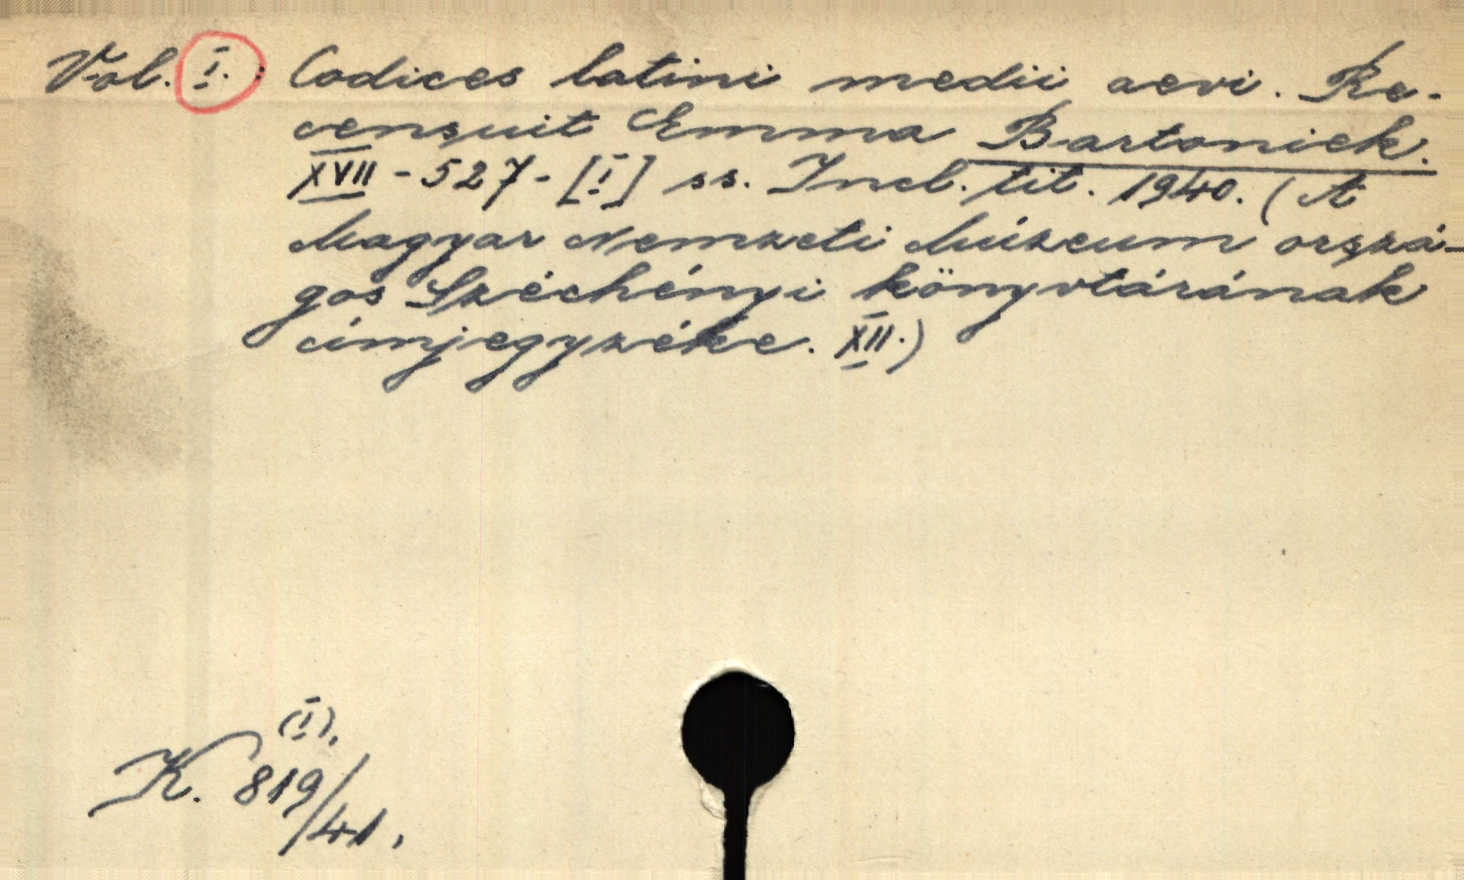 Vol. I. : Codices latini medii aevi. Re-
censuit Emma Bartoniek.
XVII - 527 - [I] ss. Incl. tit. 1940. (A
Magyar Nemzeti Múzeum orszá-
gos Széchényi könyvtárának
címjegyzéke. XII.)
(I).
K. 819/41.